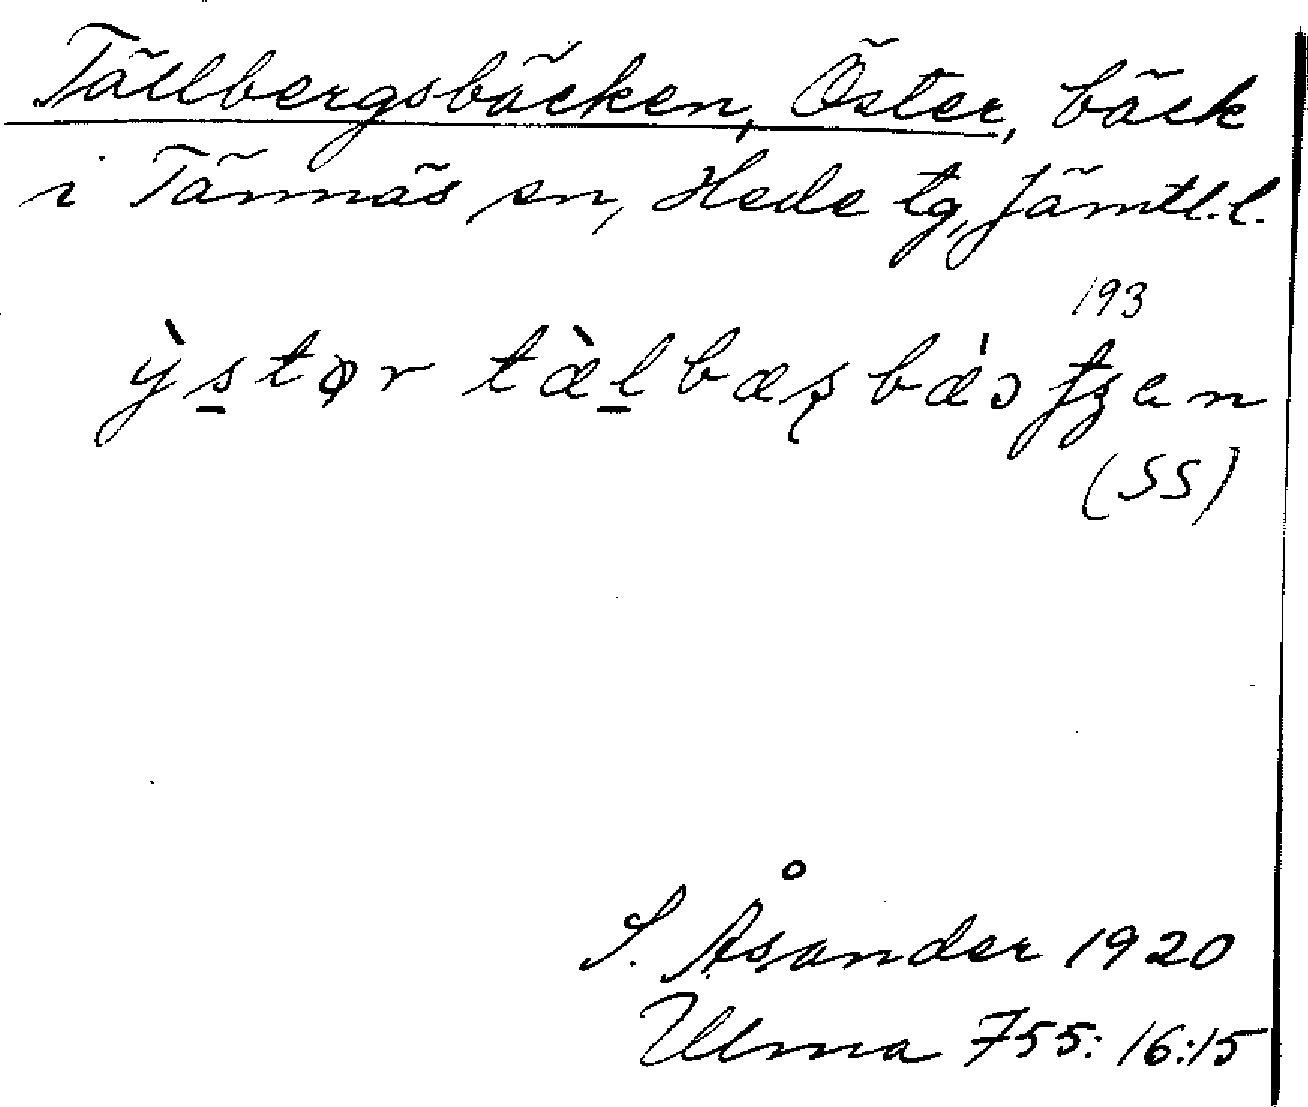 Tällbergsbäcken, Öster, bäck
i Tännäs sn, Hede tg, Jämtl. l.
193
(SS)
S. Åsander 1920
Ulma 755: 16:15